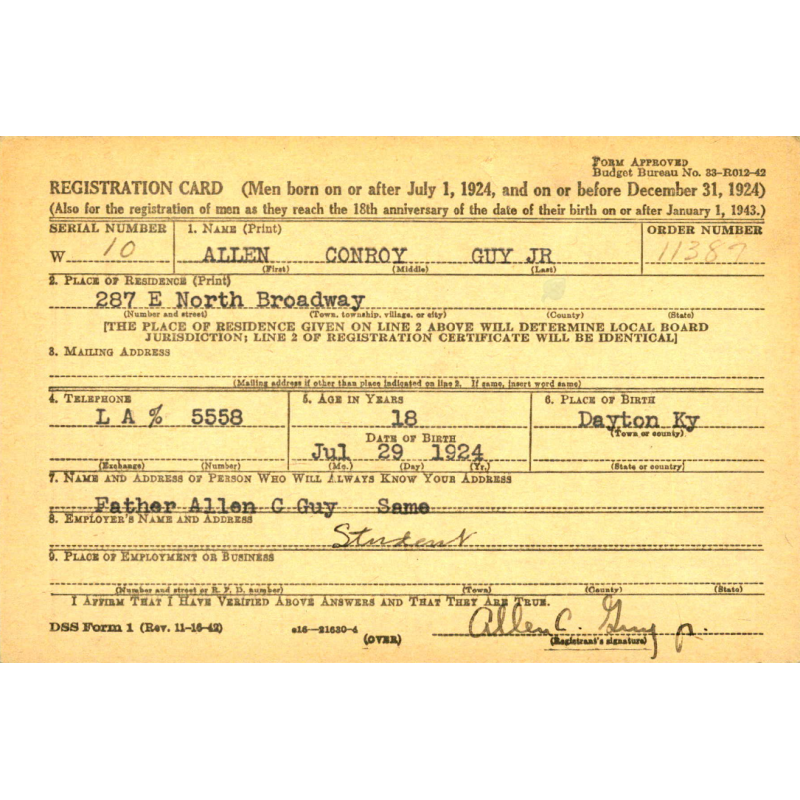 FORM APPROVED
Budget Bureau No. 33-R012-42
REGISTRATION CARD (Men born on or after July 1, 1924, and on or before December 31, 1924)
(Also for the registration of men as they reach the 18th anniversary of the date of their birth on or after January 1, 1943.)
SERIAL NUMBER 1. NAME (Print) ORDER NUMBER
W 10 ALLEN CONROY GUY JR 11387
(First) (Middle) (Last)
2. PLACE OF RESIDENCE (Print)
287 E North Broadway
(Number and street) (Town, township, village, or city) (County) (State)
[THE PLACE OF RESIDENCE GIVEN ON LINE 2 ABOVE WILL DETERMINE LOCAL BOARD
JURISDICTION; LINE 2 OF REGISTRATION CERTIFICATE WILL BE IDENTICAL]
3. MAILING ADDRESS
(Mailing address if other than place indicated on line 2. If same, insert word same)
4. TELEPHONE 5. AGE IN YEARS 6. PLACE OF BIRTH
L A % 5558 18 Dayton Ky
(Town or county)
DATE OF BIRTH
Jul 29 1924
(Exchange) (Number) (Mo.) (Day) (Yr.) (State or country)
7. NAME AND ADDRESS OF PERSON WHO WILL ALWAYS KNOW YOUR ADDRESS
Father Allen C Guy Same
8. EMPLOYER'S NAME AND ADDRESS
Student
9. PLACE OF EMPLOYMENT OR BUSINESS
(Number and street or R. F. D. number) (Town) (County) (State)
I AFFIRM THAT I HAVE VERIFIED ABOVE ANSWERS AND THAT THEY ARE TRUE.
DSS Form 1 (Rev. 11-16-42) c16—21630-4 (OVER) Allen C. Guy Jr.
(Registrant's signature)